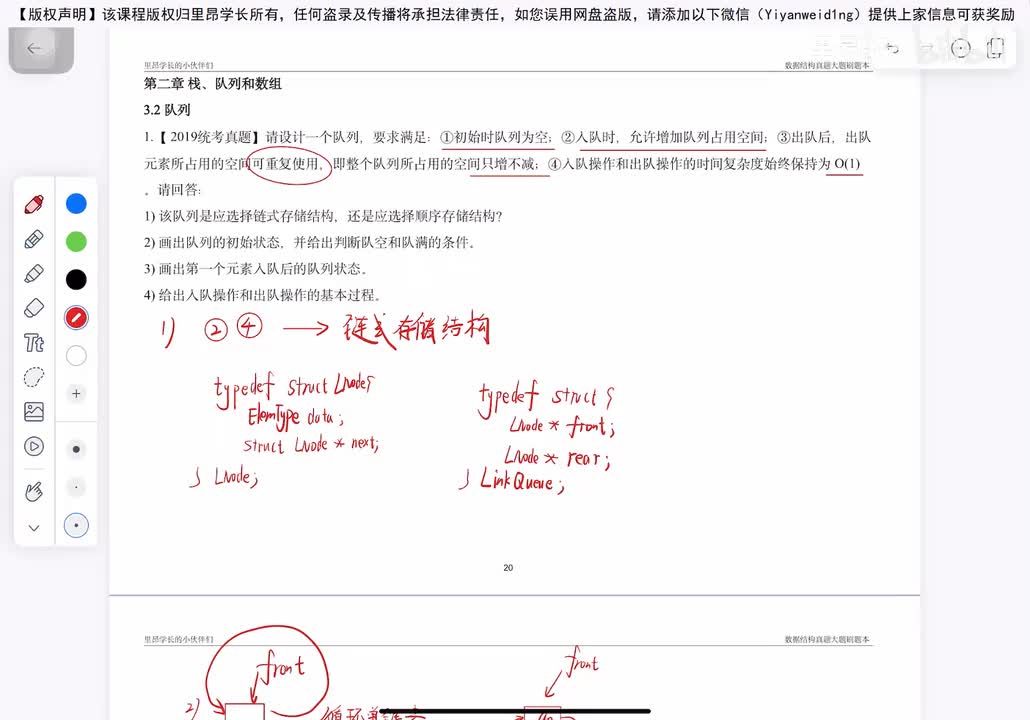 【版权声明】该课程版权归里昂学长所有，任何盗录及传播将承担法律责任，如您误用网盘盗版，请添加以下微信（Yiyanweid1ng）提供上家信息可获奖励
里昂学长的小伙伴们 数据结构真题大题刷题本
第二章 栈、队列和数组
3.2 队列
1.【 2019统考真题】请设计一个队列，要求满足：①初始时队列为空；②入队时，允许增加队列占用空间；③出队后，出队
元素所占用的空间可重复使用，即整个队列所占用的空间只增不减；④入队操作和出队操作的时间复杂度始终保持为 O(1)
。请回答:
1) 该队列是应选择链式存储结构，还是应选择顺序存储结构?
2) 画出队列的初始状态，并给出判断队空和队满的条件。
3) 画出第一个元素入队后的队列状态。
4) 给出入队操作和出队操作的基本过程。
1) ② ④ → 链式存储结构
typedef struct LNode{
ElemType data;
struct LNode * next;
} LNode;
typedef struct {
LNode * front;
LNode * rear;
} LinkQueue;
Tt
20
里昂学长的小伙伴们 数据结构真题大题刷题本
front
front
2)